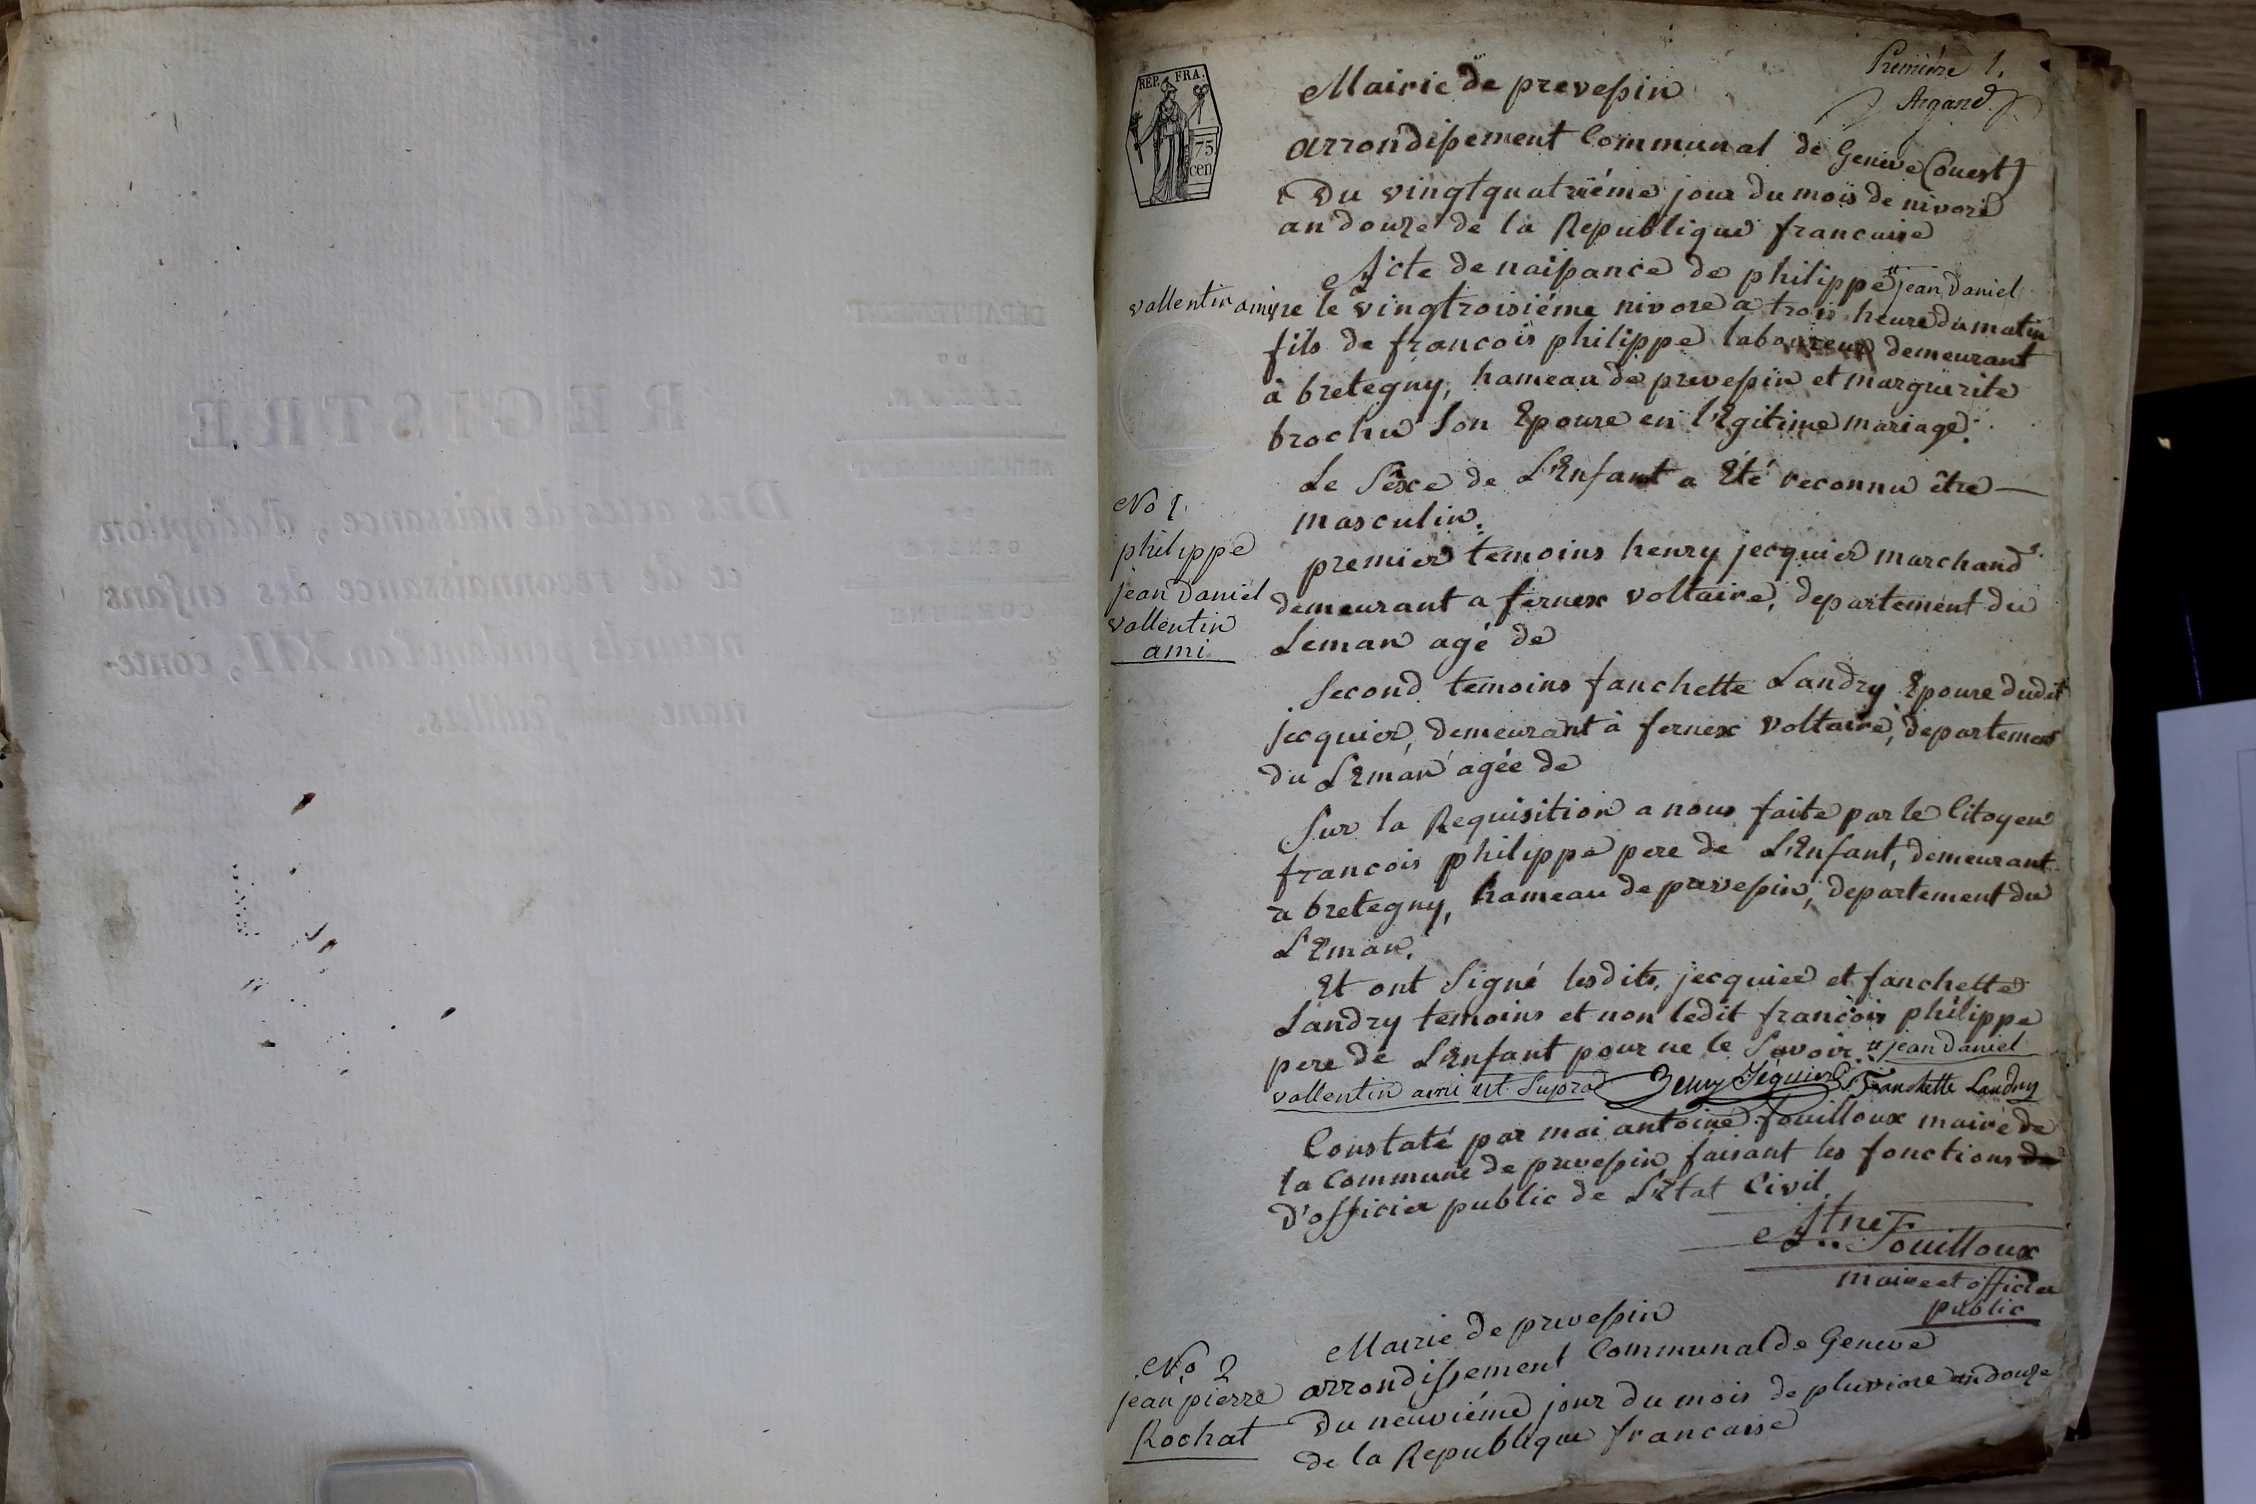 REGISTRE
Des actes de naissance, d'adoption
et de reconnaissance des enfans
naturels pendant l'an XII, conte-
nant feuillets.
DÉPARTEMENT
DU
LÉMAN.
ARRONDISSEMENT
DE
GENÈVE
COMMUNE
Premiére 1.
Argand
REP. FRA.
75
cen
Mairie de prevessin
arrondissement Communal de Geneve (ouest)
Du vingtquatriéme jour du mois de nivose
an douze de la Republique francaise
Acte de naissance de philippe " jean daniel
vallentin ami né le vingtroisiéme nivose a trois heure du matin
fils de francois philippe laboureur demeurant
à bretegny, hameau de prevessin et marguerite
brochu son Epouse en lEgitime mariage.
Le Séxe de L'Enfant a Eté reconnu être
masculin.
No 1.
philippe
jean daniel
vallentin
ami
premier temoins henry jecquier marchand
demeurant a fernex voltaire, departement du
Leman agé de
Second temoins fanchette Landry Epouse dudit
jecquier, demeurant à fernex voltaire, departement
du LEman agée de
Sur la Requisition a nous faite par le Citoyen
francois philippe pere de L'Enfant, demeurant
a bretegny, hameau de prevessin, departement du
LEman.
Et ont Signé lesdits jecquier et fanchette
Landry temoins et non ledit francois philippe
pere de L'Enfant pour ne le Savoir. " jean daniel
vallentin ami ut Supra Henry Jéquier Fanchette Landry
Constaté par moi antoine fouilloux maire de
la Commune de prevessin faisant les fonctions de
d'officier public de L'Etat Civil.
Atne Fouilloux
maire et officier
public
No 2
jean pierre
Rochat
Mairie de prevessin
arrondissement Communal de Geneve
Du neuviéme jour du mois de pluviose an douze
de la Republique francaise